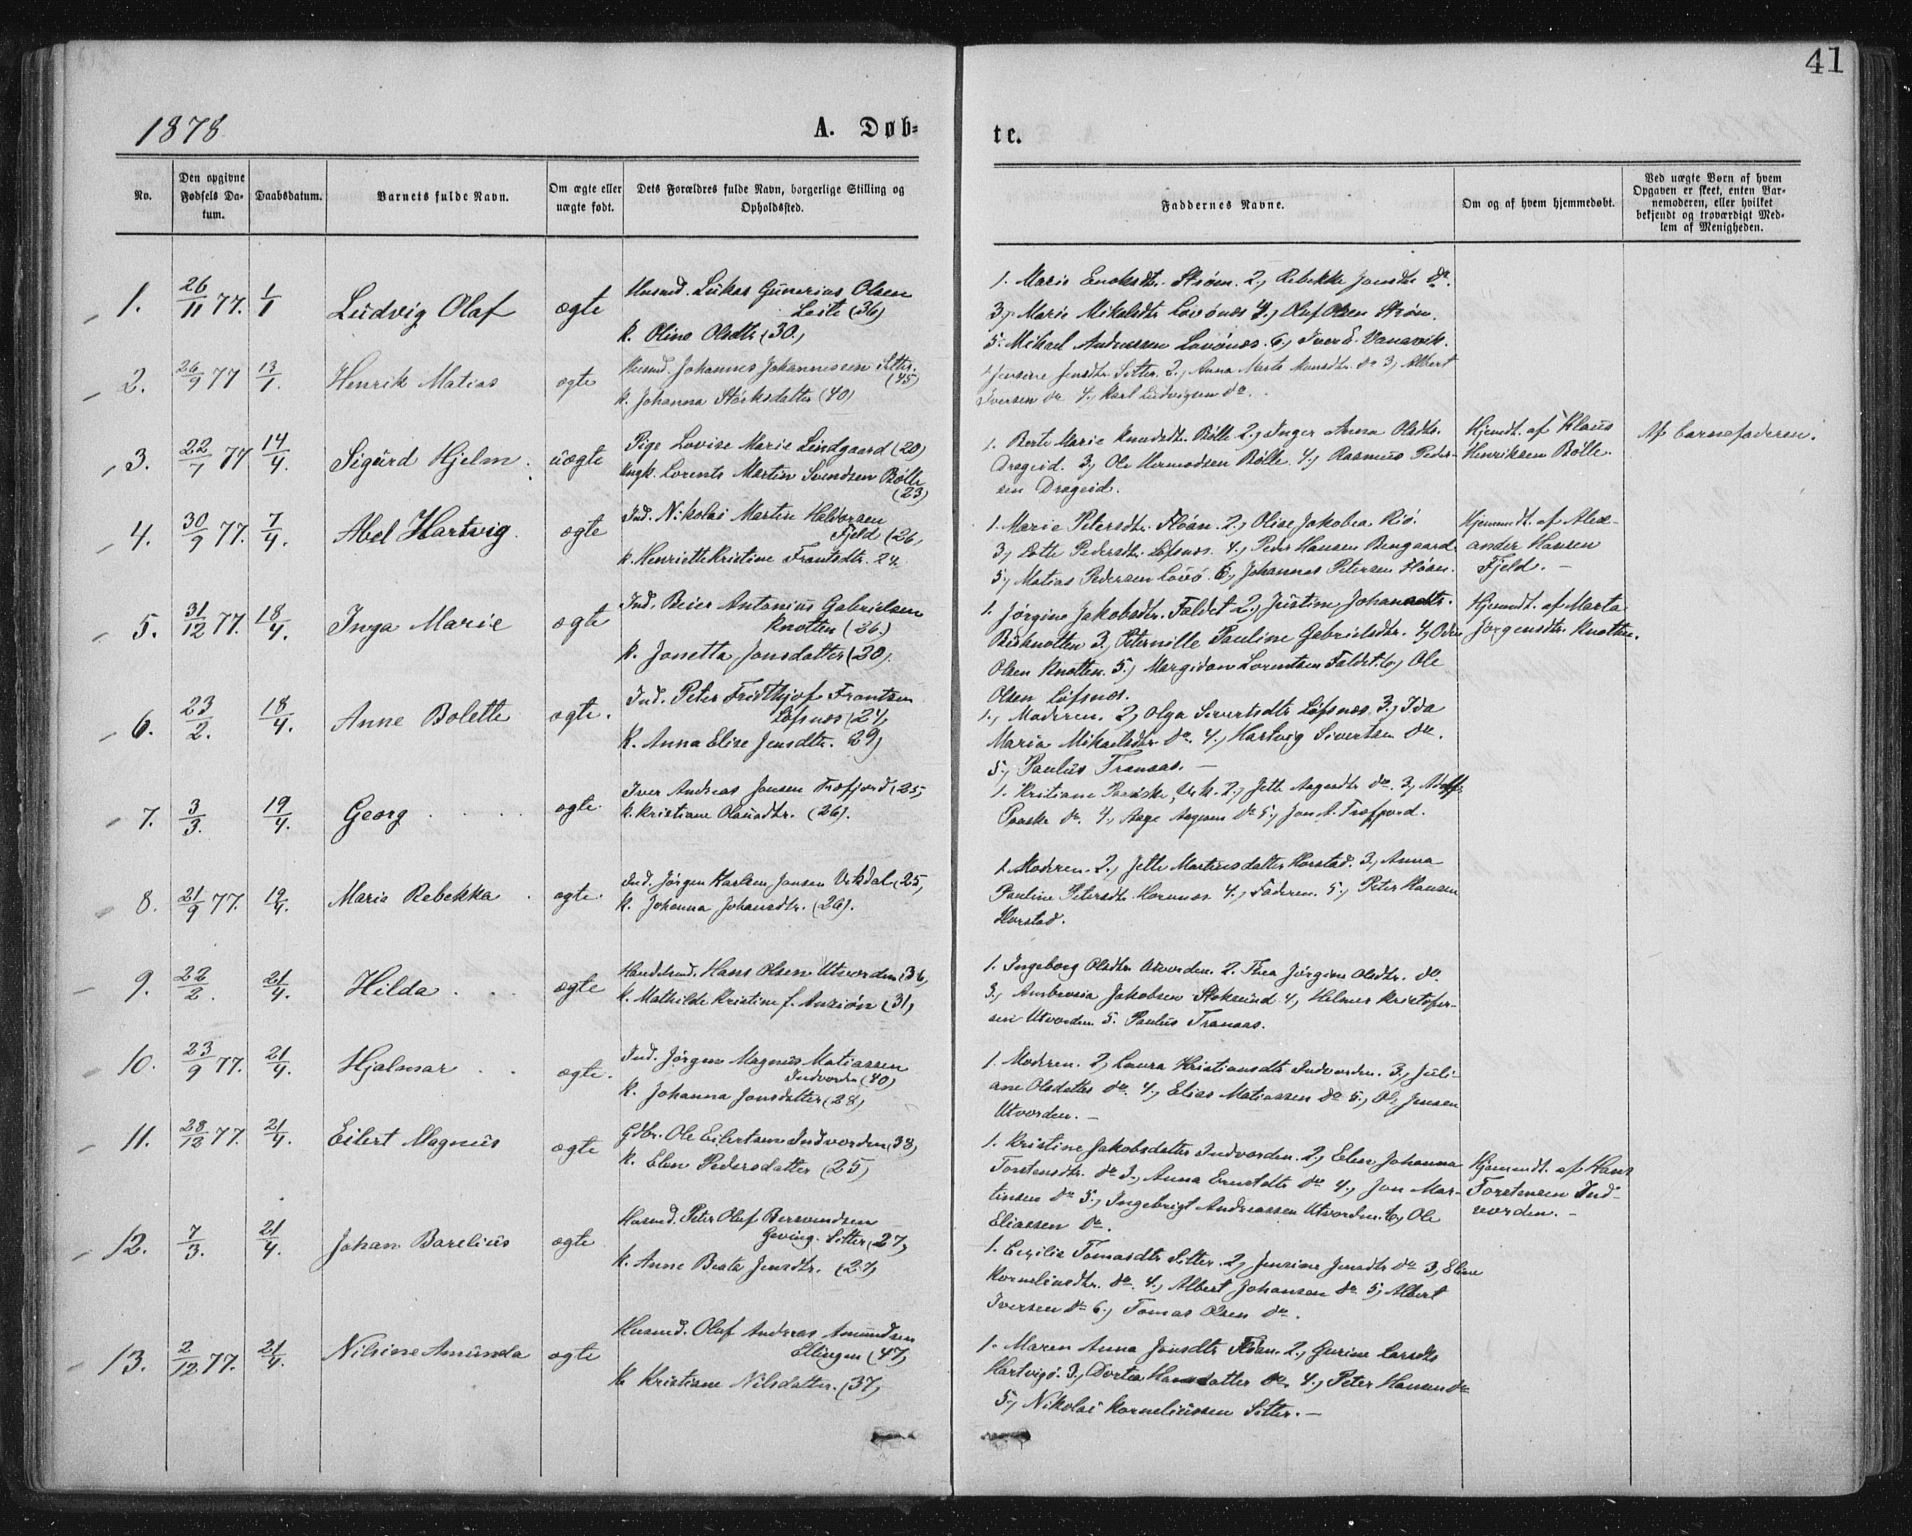 41
1878 A. Døb- te.
No. | Den opgivne Fødsels Datum. | Daabsdatum. | Barnets fulde Navn. | Om ægte eller uægte født. | Dets Forældres fulde Navn, borgerlige Stilling og Opholdssted. | Faddernes Navne. | Om og af hvem hjemmedøbt. | Ved uægte Børn af hvem Opgaven er skeet, enten Barnemoderen, eller hvilket bekjendt og troværdigt Medlem af Menigheden.
1. 26/11 77. 1/1 Ludvig Olaf ægte Husmd. Lukas Gunerius Olsen
(36)
k. Oline Olsdtr (30.)
1. Marie Enoksdtr. Strøm. 2, Rebekka Jonsdtr do.
3, Marie Mikalsdtr Lovønæs 4, Oluf Olsen Strøm.
5. Mikael Andreassen Lovønæs. 6, Iver E. Vansvik.
2. 26/9 77 13/1. Henrik Matias ægte Husmd. Johannes Johannessen Sitter.
(45)
k. Johanna Størksdatter (40)
1 Jensine Jensdtr. Sitter. 2, Anna Marta Monsdtr. do 3, Albert
Iversen do 4, Karl Ludvigsen do.
3. 22/7 77 14/4. Sigurd Hjelm. uægte Pige Lovise Marie Lindgaard (20)
Ungk. Lorents Martin Svendsen Bølle
(23)
1. Berte Marie Knudsdtr. Bølle 2, Inger Anna Olsdtr.
Drageid. 3, Ole Hermodsen Bølle. 4, Rasmus Peder-
sen Drageid.
Hjemdt. af Klaus
Henriksen Bølle.
Af barnefaderen.
4. 30/9 77. 7/4. Abel Hartvig. ægte Ind. Nikolai Martin Halvorsen
Fjeld (26,
k. Henriette Kristine Frantsdtr. 24.
1. Marie Petersdtr. Floan. 2, Olise Jakobea Riø.
3, Lotte Pedersdtr. Løfsnæs. 4, Peder Hansen Bengaard
5, Matias Pedersen Lovø. 6, Johannes Petersen Floan.
Hjemmdt. af Alex-
ander Hansen
Fjeld. -
5. 31/12 77. 18/4. Inga Marie ægte Ind. Beier Antonius Gabrielsen
Knotten (26.)
k. Jonetta Jonsdatter (20)
1. Jørgine Jakobsdtr. Faldet 2, Justine Johansdtr.
3, Peternille Pauline Gabrielsdtr. 4, Odin
Olsen Knotten. 5, Margido Lorentsen Faldet. 6, Ole
Olsen Løfsnæs.
Hjemdt. af Marta
Jørgensdtr. Knotten.
6. 23/2. 18/4. Anne Bolette ægte. Ind. Peter Fridthjof Frantsen
Løfsnæs (24,
k. Anna Elise Jensdtr. 29)
1, Moderen. 2, Olga Sivertsdtr Løfsnæs. 3, Ida
Maria Mikaelsdtr. do. 4, Hartvig Sivertsen do.
5, Paulus Tranaas. -
7. 3/3. 19/4. Georg ægte. Iver Andreas Jansen Træfjord (25,
k. Kristiane Olausdtr. (26).
1. Kristiane 2, Jette Aagesdtr do. 3, Adolf
do. 4, Aage Aagesen do 5, Jon A. Træfjord.
8. 21/9 77. 19/4. Marie Rebekka ægte. Ind. Jørgen Karlsen Jansen Utsdal (25,
k. Johanna Johansdtr. (26).
1. Moderen. 2, Jette Martinusdatter Horstad. 3, Anna
Pauline Petersdtr Horvnæs 4, Faderen. 5, Peter Hansen
Horstad.
9. 22/2. 21/4. Hilda ægte Handelsmd. Hans Olsen Utvorden (36,
k. Mathilde Kristine f. Anzjøn (31,
1. Ingeborg Olsdtr Utvorden. 2. Thea Jørgine Olsdtr. do
3, Ambrosia Jakobsen 4, Helmer Kristofer-
sen Utvorden 5. Paulus Tranaas.
10. 23/9 77. 21/4. Hjalmar ægte. Ind. Jørgen Magnus Matiassen
Indvorden (40)
k. Johanna Jonsdatter (28)
1. Moderen. 2, Laura Kristiansdtr Indvorden. 3, Juli-
ane Olsdatter do. 4, Elias Matiassen do 5, Ole Jensen
Utvorden. -
11. 28/12 77. 21/4. Eilert Magnus ægte Gdbr. Ole Eilertsen Indvorden (38,
k. Elen Pedersdatter (25)
1. Kristine Jakobsdatter Indvorden. 2, Elen Johanna
Torstensdtr. do 3, Anna Ernstdtr do 4, Jon Mar-
tinsen do 5, Ingebrigt Andreassen Utvorden. 6, Ole
Eliassen do.
Hjemmdt. af Hans
Torstensen Ind-
vorden. -
12. 7/3. 21/4. Johan Barelius ægte Husmd. Peter Oluf Bersvendsen
Geving. Sitter (27,
k. Anne Beate Jensdtr. (27)
1. Cecilie Tomasdtr Sitter. 2, Jensine Jensdtr do 3, Elise
Korneliusdtr. do. 4, Albert Johansen do 5, Albert
Iversen do 6, Tomas Olsen do.
13. 2/12 77. 21/4. Nilsine Amunda ægte Husmd. Oluf Andreas Amundsen
Ellingen (47)
k Kristiane Nilsdatter. (37,
1. Maren Anna Jonsdtr Floan. 2, Gurine Larsdtr
Hartvigø. 3, Dortea Hansdatter do. 4, Peter Hansen do
5, Nikolai Korneliussen Sitter. -